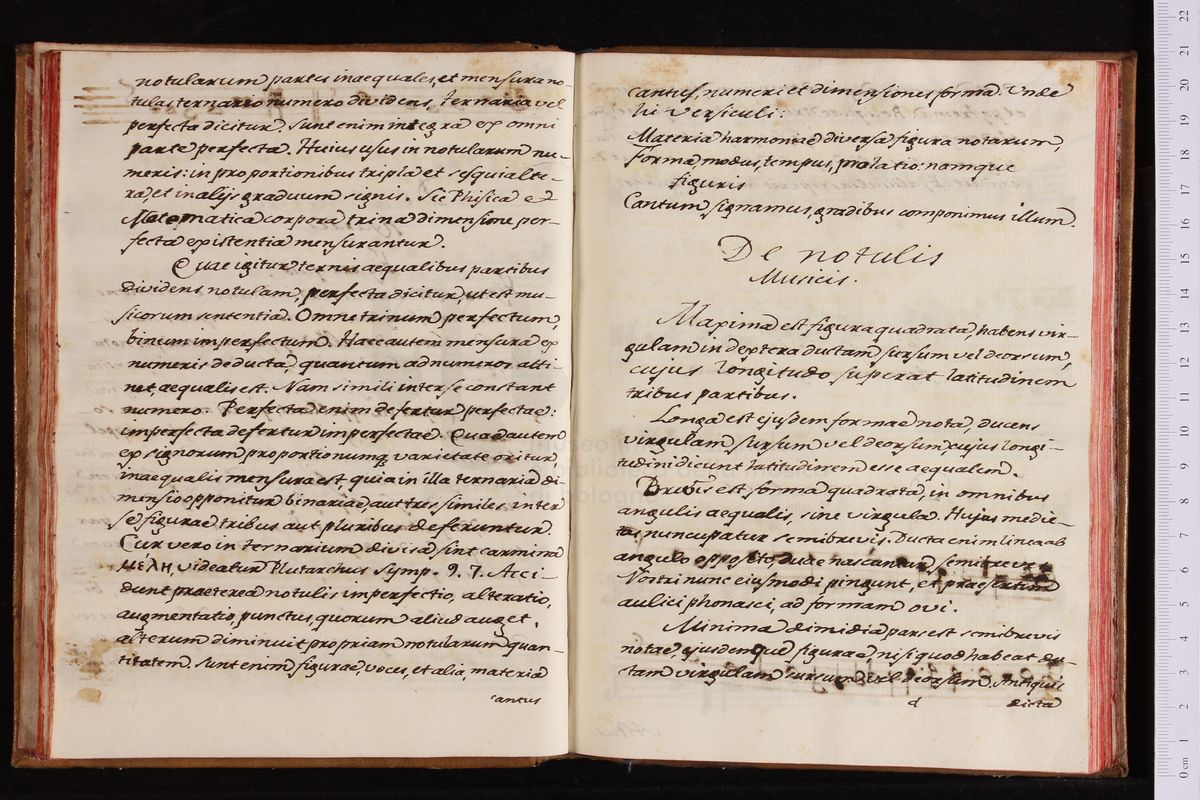 notularum partes inaequales, et mensura no
tulas ternario numero dividens, ternaria vel
perfecta dicitur. Sunt enim integra ex omni
parte perfecta. Huius usus in notularum nu-
meris: in proportionibus tripla et sesquialte-
ra, et in alijs graduum signis. Sic Phisica et
Matematica corpora trina dimensione per-
fecta existentia mensurantur.
Quae igitur ternis aequalibus partibus
dividens notulam, perfecta dicitur, ut est mu-
sicorum sententia. Omne trinum perfectum,
binum imperfectum. Haec autem mensura ex
numeris deducta, quantum ad numeros atti-
net, aequalis est. Nam simili inter se constant
numero. Perfecta enim defertur perfectae:
imperfecta defertur imperfectae. Quae autem
ex signorum proportionumq varietate oritur,
inaequalis mensura est, quia in illa ternaria di-
mensio opponitur binariae aut tres similes inter
se figurae tribus aut pluribus deferuntur
Cur vero in ternarium divisa sint carmina
μελη, videatur Plutarchus Symp. 9. 7. Acci-
dunt praeterea notulis imperfectio, alteratio,
augmentatio, punctus, quorum aliud auget,
alterum diminuit propriam notularum quan-
titatem. Sunt enim figurae, voces, et alia, materia
cantus
cantus, numeri et dimensiones forma. Unde
hi Versiculi:
Materia harmoniae diversa figura notarum,
forma, modus, tempus, prolatio: namque
figuris
Cantum signamus, gradibus componimus illum.
De notulis
Musicis.
Maxima est figura quadrata, habens vir-
gulam in dextera ductam sursum vel deorsum,
cujus longitudo superat latitudinem
tribus partibus.
Longa est ejusdem formae nota, ducens
virgulam sursum vel deorsum, cujus longi-
tudini dicunt latitudinem esse aequalem.
Brevis est forma quadrata, in omnibus
angulis aequalis, sine virgula. Hujus medie-
tas nuncupatur semibrevis. Ducta enim linea ab
angulo opposito, duae nascantur semibreves.
Nostri nunc ejusmodi pingunt, et praesertim
aulici phonasci, ad formam ovi.
Minima dimidia pars est semibrevis
notae, ejusdemque figurae, nisi quod habeat du-
ctam virgulam sursum vel deorsum. Antiquis
d dicta